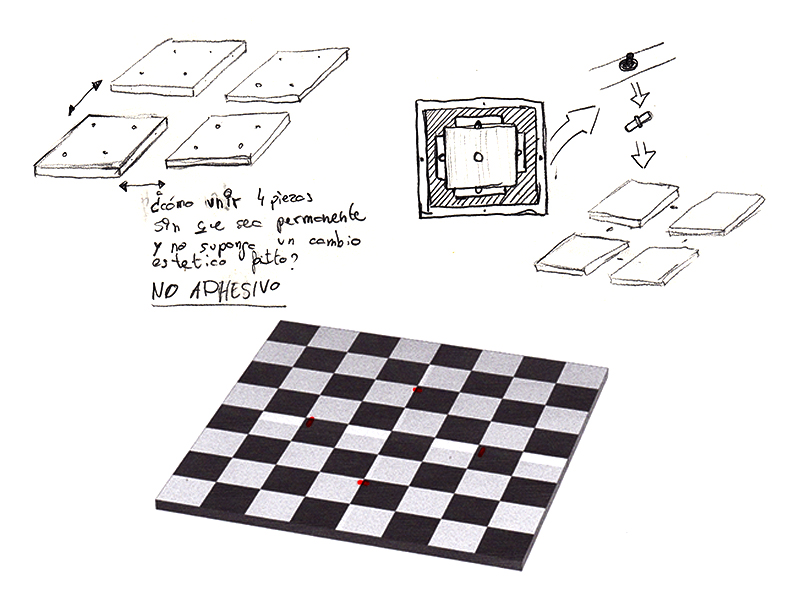 ¿cómo unir 4 piezas
sin que sea permanente
y no suponga un cambio
estetico fatto?
NO ADHESIVO